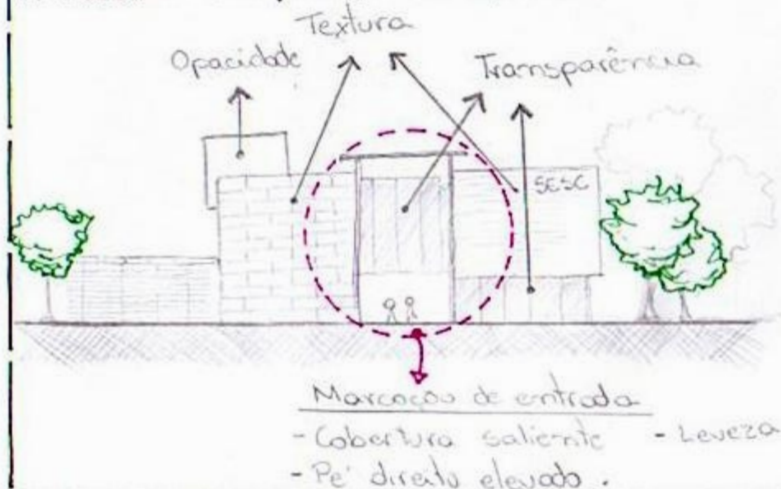 Textura
Opacidade
Transparência
SESC
Marcação de entrada
- Cobertura saliente - Leveza
- Pé direito elevado.